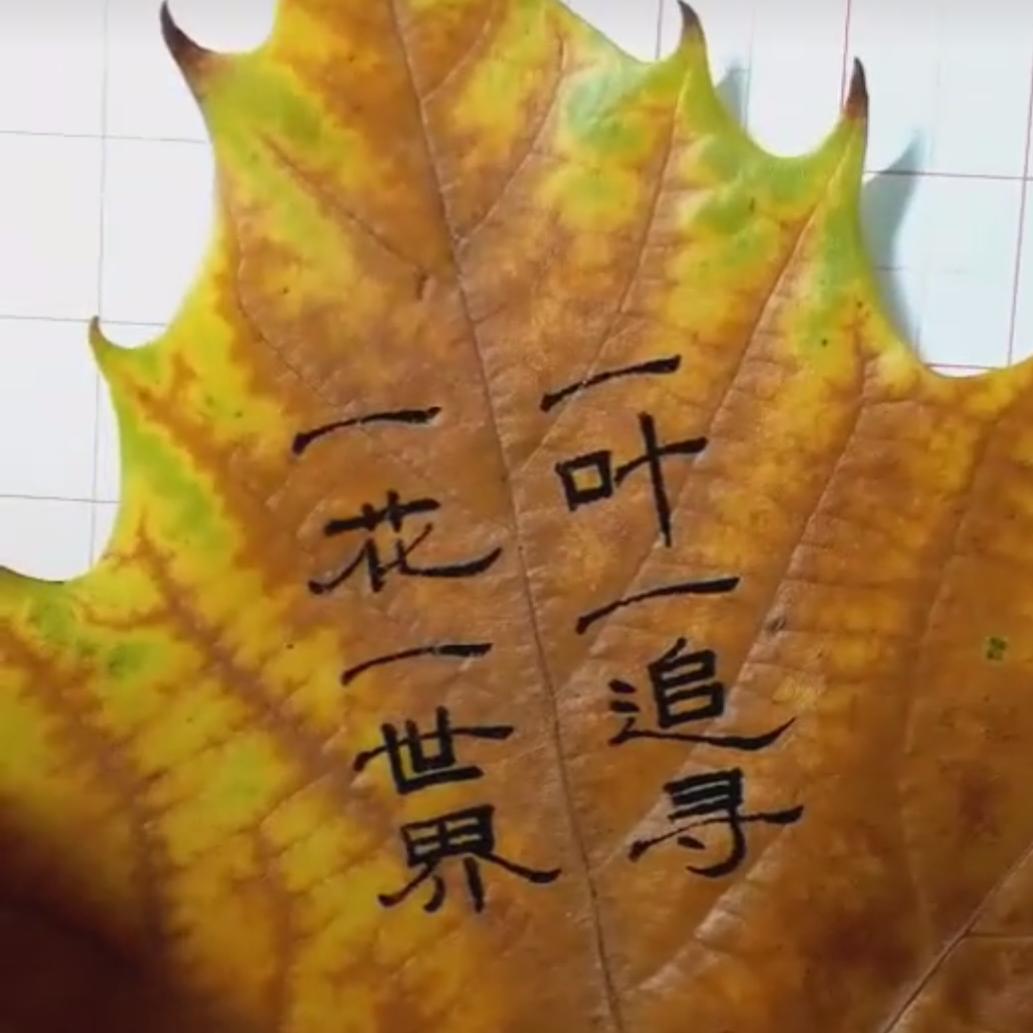 一花一世界
一叶一追寻